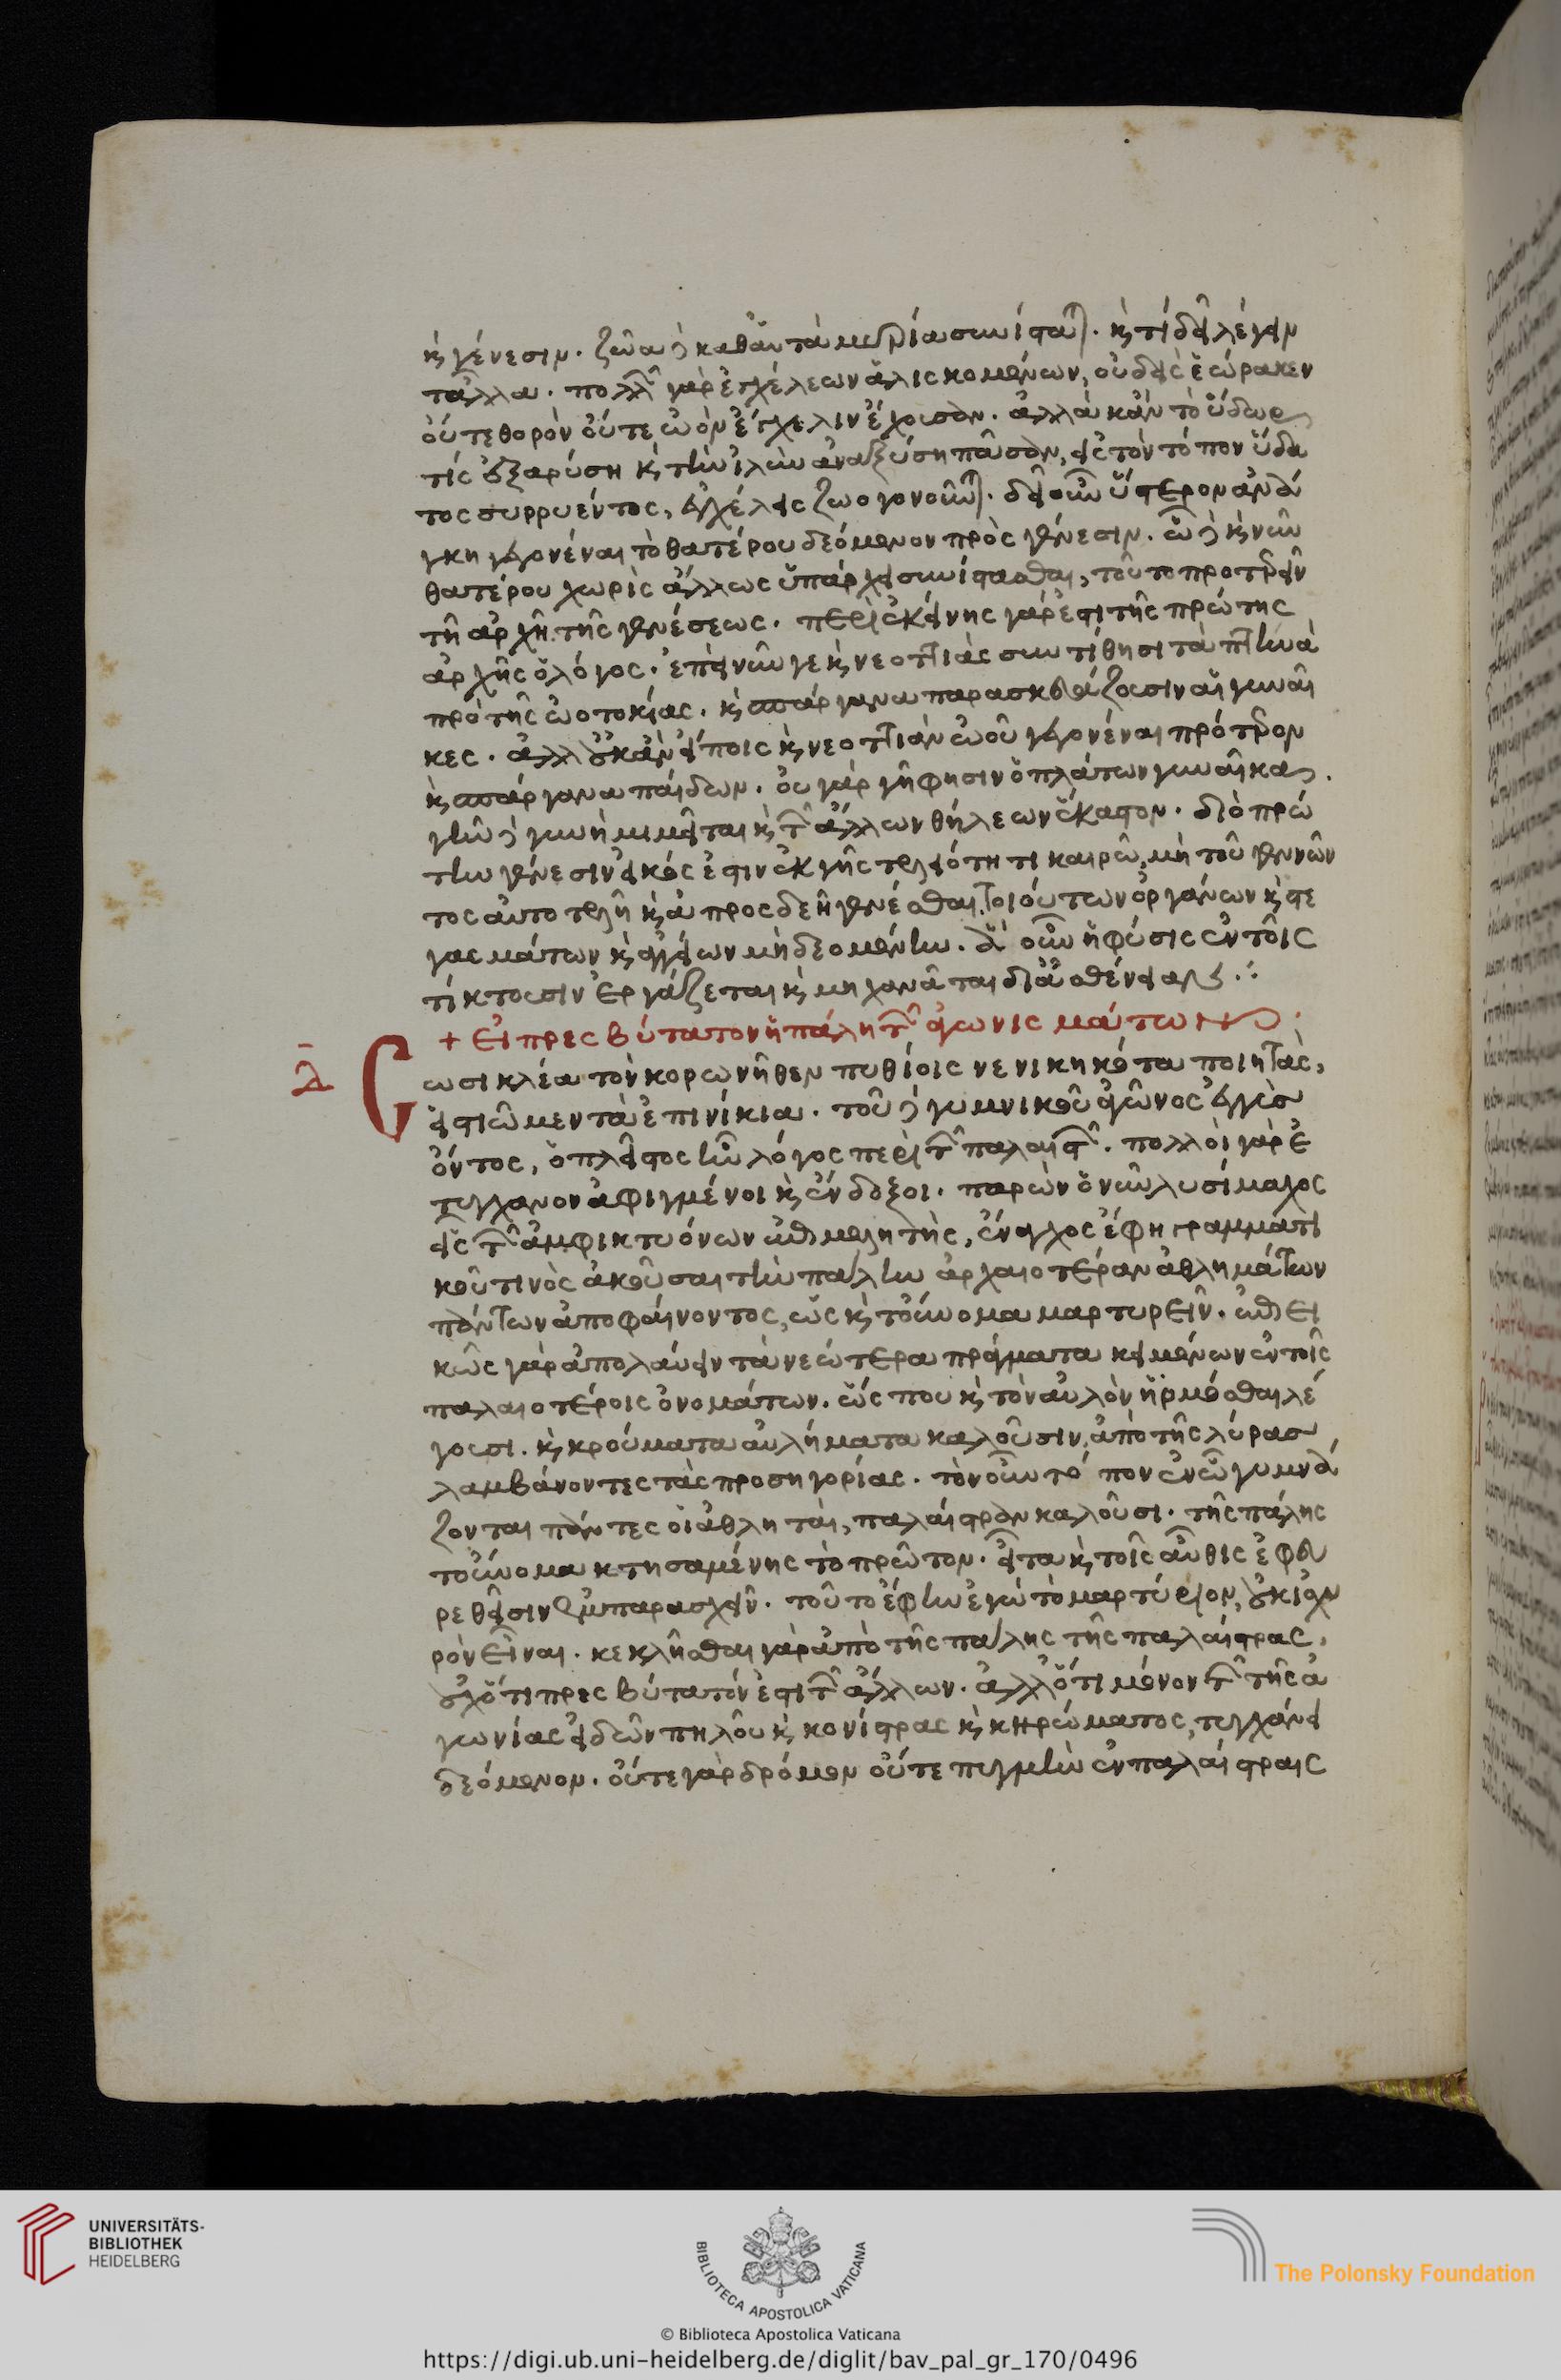 κ γένεσιν. ζῶα δὲ καθαὑτὰ μυρία συνίσταται. κ τί δεῖ λέγειν
τἆλλα. πολλῶν γὰρ ἐγχέλεων ἁλισκομένων, οὐδεὶς ἑώρακεν
οὔτε θορὸν οὔτε ὠὸν ἔγχελιν ἔχουσαν. ἀλλὰ κἂν τὸ ὕδωρ
τίς ἐξαρύση κ τὴν ἰλὺν ἀναξύση πᾶσαν, εἰς τὸν τόπον ὕδα
τος συρρυέντος, ἐγχέλεις ζωογονοῦνται. δεῖ οὖν ὕστερον ἀνά
γκη γεγονέναι τὸ θατέρου δεόμενον πρὸς γένεσιν. ὧ δὲ κ νῦν
θατέρου χωρὶς ἄλλως ὑπάρχει συνίστασθαι, τοῦτο προτερεῖν
τῆ ἀρχῆ τῆς γενέσεως. περὶ ἐκείνης γάρ ἐστι τῆς πρώτης
ἀρχῆς ὁ λόγος. ἐπεὶ νῦν γε κ νεοττιὰς συντίθησι τὰ πτηνὰ
πρὸ τῆς ὠοτοκίας. κ σπάργανα παρασκευάζουσιν αἱ γυναῖ
κες. ἀλλ οὐκ ἂν εἴποις κ νεοττιὰν ὠοῦ γεγονέναι πρότερον
κ σπάργανα παίδων. οὐ γὰρ γῆ φησιν ὁ πλάτων γυναῖκα,
γῆν δὲ γυνὴ μιμεῖται κ τῶν ἄλλων θήλεων ἕκαστον. διὸ πρώ
την γένεσιν εἰκός ἐστιν ἐκ γῆς τελειότητι καιροῦ, μὴ τοῦ γεννῶν
τος αὐτοτελῆ κ ἀπροσδεῆ γενέσθαι, τοιούτων ὀργάνων κ στε
γασμάτων κ ἀγγείων μὴ δεομένην. ἃ οὖν ἡ φύσις ἐν τοῖς
τίκτουσιν ἐργάζεται κ μηχανᾶται διἀσθένειαν
+ Εἰ πρεσβύτατον ἡ πάλη τῶν ἀγωνισμάτων
δ Σωσικλέα τὸν κορωνῆθεν πυθίοις νενικηκότα ποιητὰς,
εἱστιῶμεν τὰ ἐπινίκια. τοῦ δὲ γυμνικοῦ ἀγῶνος ἐγγὺς
ὄντος, ὁ πλεῖστος ἦν λόγος περὶ τῶν παλαιστῶν. πολλοὶ γὰρ ἐ
τύγχανον ἀφιγμένοι κ ἔνδοξοι. παρὼν οὖν λυσίμαχος
εἷς τῶν ἀμφικτυόνων ἐπιμελητὴς, ἔναγχος ἔφη γραμματι
κοῦ τινὸς ἀκοῦσαι τὴν πάλην ἀρχαιοτέραν ἀθλημάτων
πάντων ἀποφαίνοντος, ὡς κ τοὔνομα μαρτυρεῖν. ἐπιει
κῶς γὰρ ἀπολαύειν τὰ νεώτερα πράγματα κειμένων ἐν τοῖς
παλαιοτέροις ὀνομάτων. ὥς που κ τὸν αὐλὸν ἡρμόσθαι λέ
γουσι. κ κρούματα αὐλήματα καλοῦσιν, ἀπὸ τῆς λύρας
λαμβάνοντες τὰς προσηγορίας. τὸν οὖν τόπον ἐν ὧ γυμνά
ζονται πάντες οἱ ἀθληταὶ, παλαίστραν καλοῦσι. τῆς πάλης
τοὔνομα κτησαμένης τὸ πρῶτον. εἶτα κ τοῖς αὖθις ἐφευ
ρεθεῖσιν ἐμπαρασχεῖν. τοῦτο ἔφην ἐγὼ τὸ μαρτύριον, οὐκ ἰσχυ
ρὸν εἶναι. κεκλῆσθαι γὰρ ἀπὸ τῆς πάλης τῆς παλαίστρας,
οὐχ ὅτι πρεσβύτατόν ἐστι τῶν ἄλλων. ἀλλ ὅτι μόνον τῶν τῆς ἀ
γωνίας εἰδῶν πηλοῦ κ κονίστρας κ κηρώματος, τυγχάνει
δεόμενον. οὔτε γὰρ δρόμον οὔτε πυγμὴν ἐν παλαίστραις
UNIVERSITÄTS-
BIBLIOTHEK
HEIDELBERG
BIBLIOTECA APOSTOLICA VATICANA
The Polonsky Foundation
© Biblioteca Apostolica Vaticana
https://digi.ub.uni-heidelberg.de/diglit/bav_pal_gr_170/0496